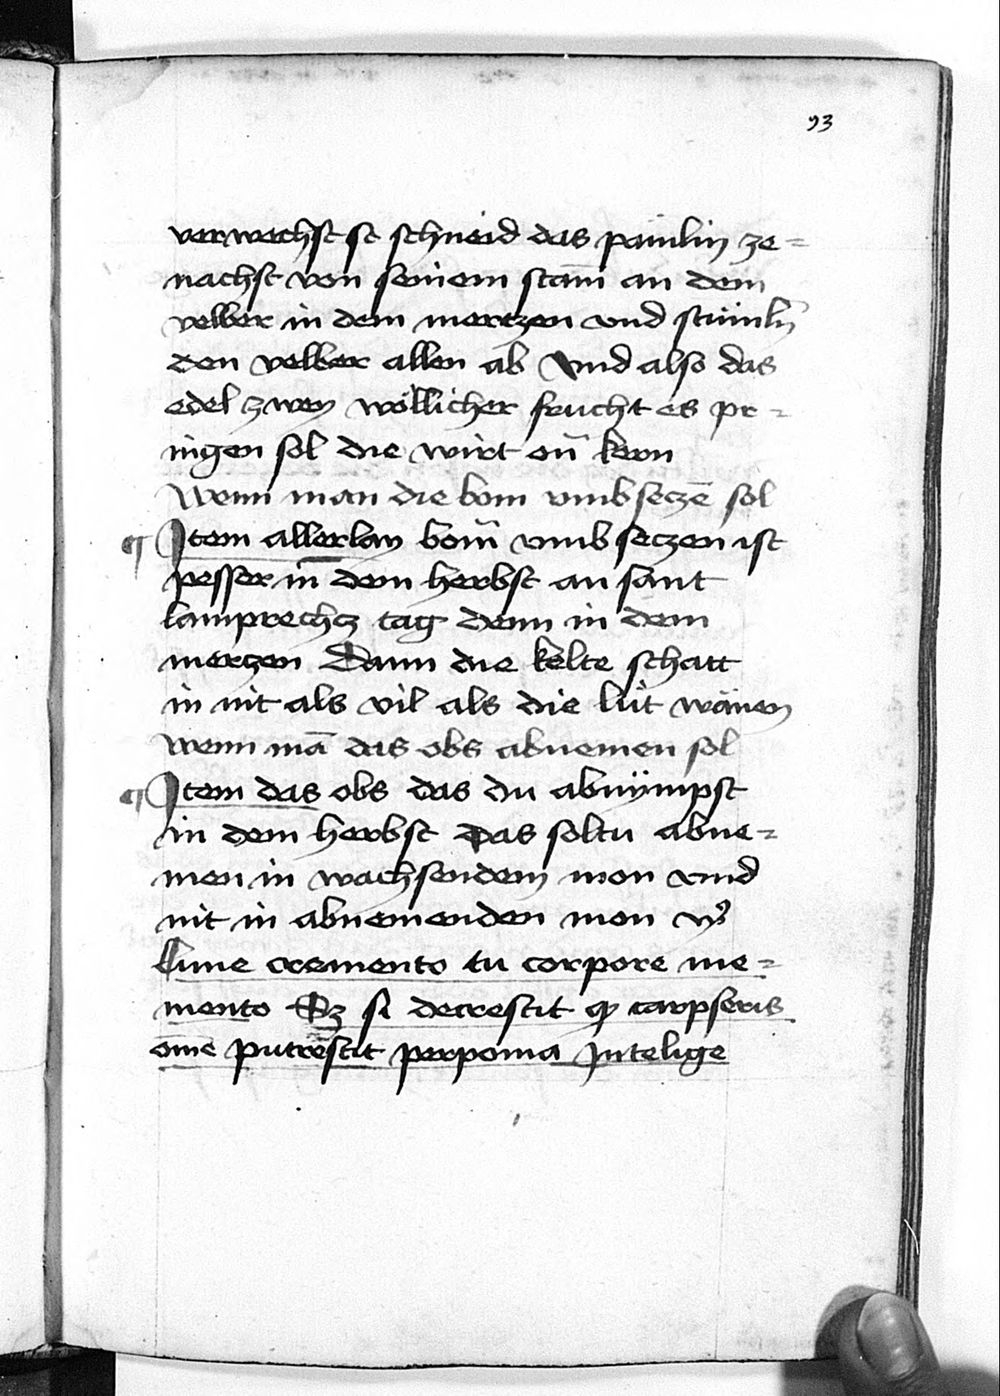 93
verwechst st schneid das päùmlin ze=
nachst von seinem stam̄ an dem
velber in dem mertzen vnd stùmln̄
den velber allen ab Vnd also das
edel zwey wöllicher frucht es pr=
ingen sol die wirt on̄ kern
Wenn man die bom vmb seczē sol
¶ Item allerlay bom̄ vmb seczen ist
pesser in dem herbst an sant
lamprechcz tag denn in dem
merczen Dann die kelte schatt
in nit als vil als die lùt wänen
wenn mā das obs abnemen sol
¶ Item das obs das du abnÿmpst
in dem herbst Das soltu abne=
men in wachsendem mon vnd
nit in abnemenden mon
Lune cremento tu corpore me=
mento Sz si decrescit carpseris
om̄e putrescit per poma Intelige